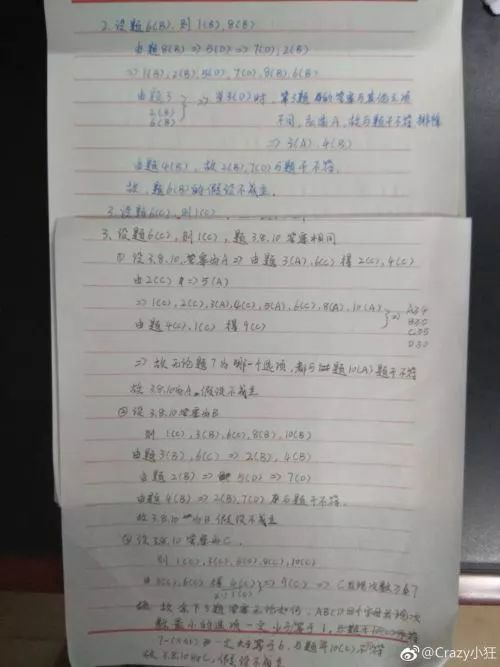 2. 设题6(B),则1(B),8(B)
由题8(B) => 5(D) => 7(D),2(B)
=> 1(B),2(B),5(D),7(D),8(B),6(B)
由题3
2(B)
6(B)
} => 当3(D)时,第3题的答案与其他三项
不同,应选A,故与题干不符 排除
=> 3(A).4(B)
由题4(B),故2(B),7(D)与题干不符.
故,题6(B)的假设不成立.
3.设题6(C),则1(C)
3. 设题6(C),则1(C),题3.8.10答案相同
① 设3.8.10.答案为A => 由题3(A),6(C)得2(C),4(C)
由2(C) => 5(A)
=> 1(C),2(C),3(A),4(C),5(A),6(C),8(A),10(A)
由题4(C),1(C)得9(C)
} =>
A≥4
B≥0
C≥5
D≥0
=> 故无论题7为哪一个选项,都与题10(A)题干不符
故3.8.10为A 假设不成立
② 设3.8.10答案为B
则1(C),3(B),6(C),8(B),10(B)
由题3(B),6(C) => 2(B),4(B)
由题2(B) => 5(D) => 7(D)
由题4(B) => 2(B),7(D) 与题干不符.
故3.8.10为B 假设不成立
③ 设3.8.10答案为C.
则1(C),3(C),6(C),8(C),10(C)
由3(C),6(C)得4(C) => 9(C) => C出现次数≥6
故余下题答案无论如何,ABCD四个字母出现次
数最小的选项一定小于等于1,
一定大于等于6,与题10(C)不符
故3.8.10为C,假设不成立
@Crazy小狂